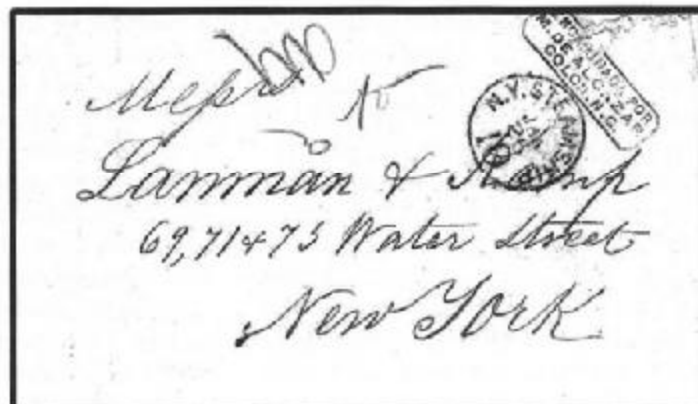 Messrs
Lanman & Kemp
69, 71 & 73 Water Street
New York
N.Y. STEAMSHIP
10
M. DE ALCAZAR
COLON, N.G.